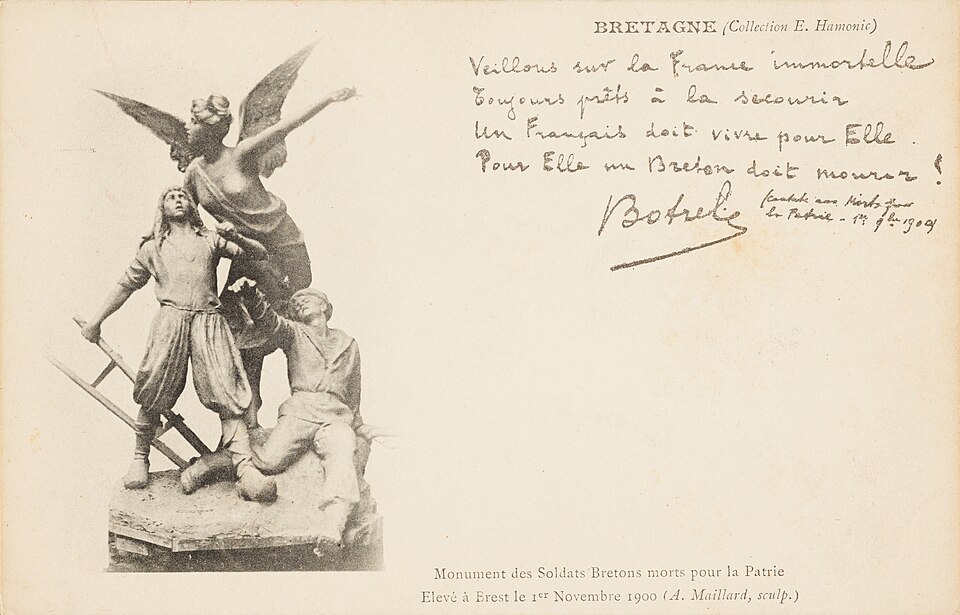 BRETAGNE (Collection E. Hamonic)
Veillons sur la France immortelle
Toujours prêts à la secourir
Un Français doit vivre pour Elle.
Pour Elle un Breton doit mourir !
Botrel
(Cantate aux Morts pour
la Patrie - 1er 9bre 1900)
Monument des Soldats Bretons morts pour la Patrie
Elevé à Brest le 1er Novembre 1900 (A. Maillard, sculp.)